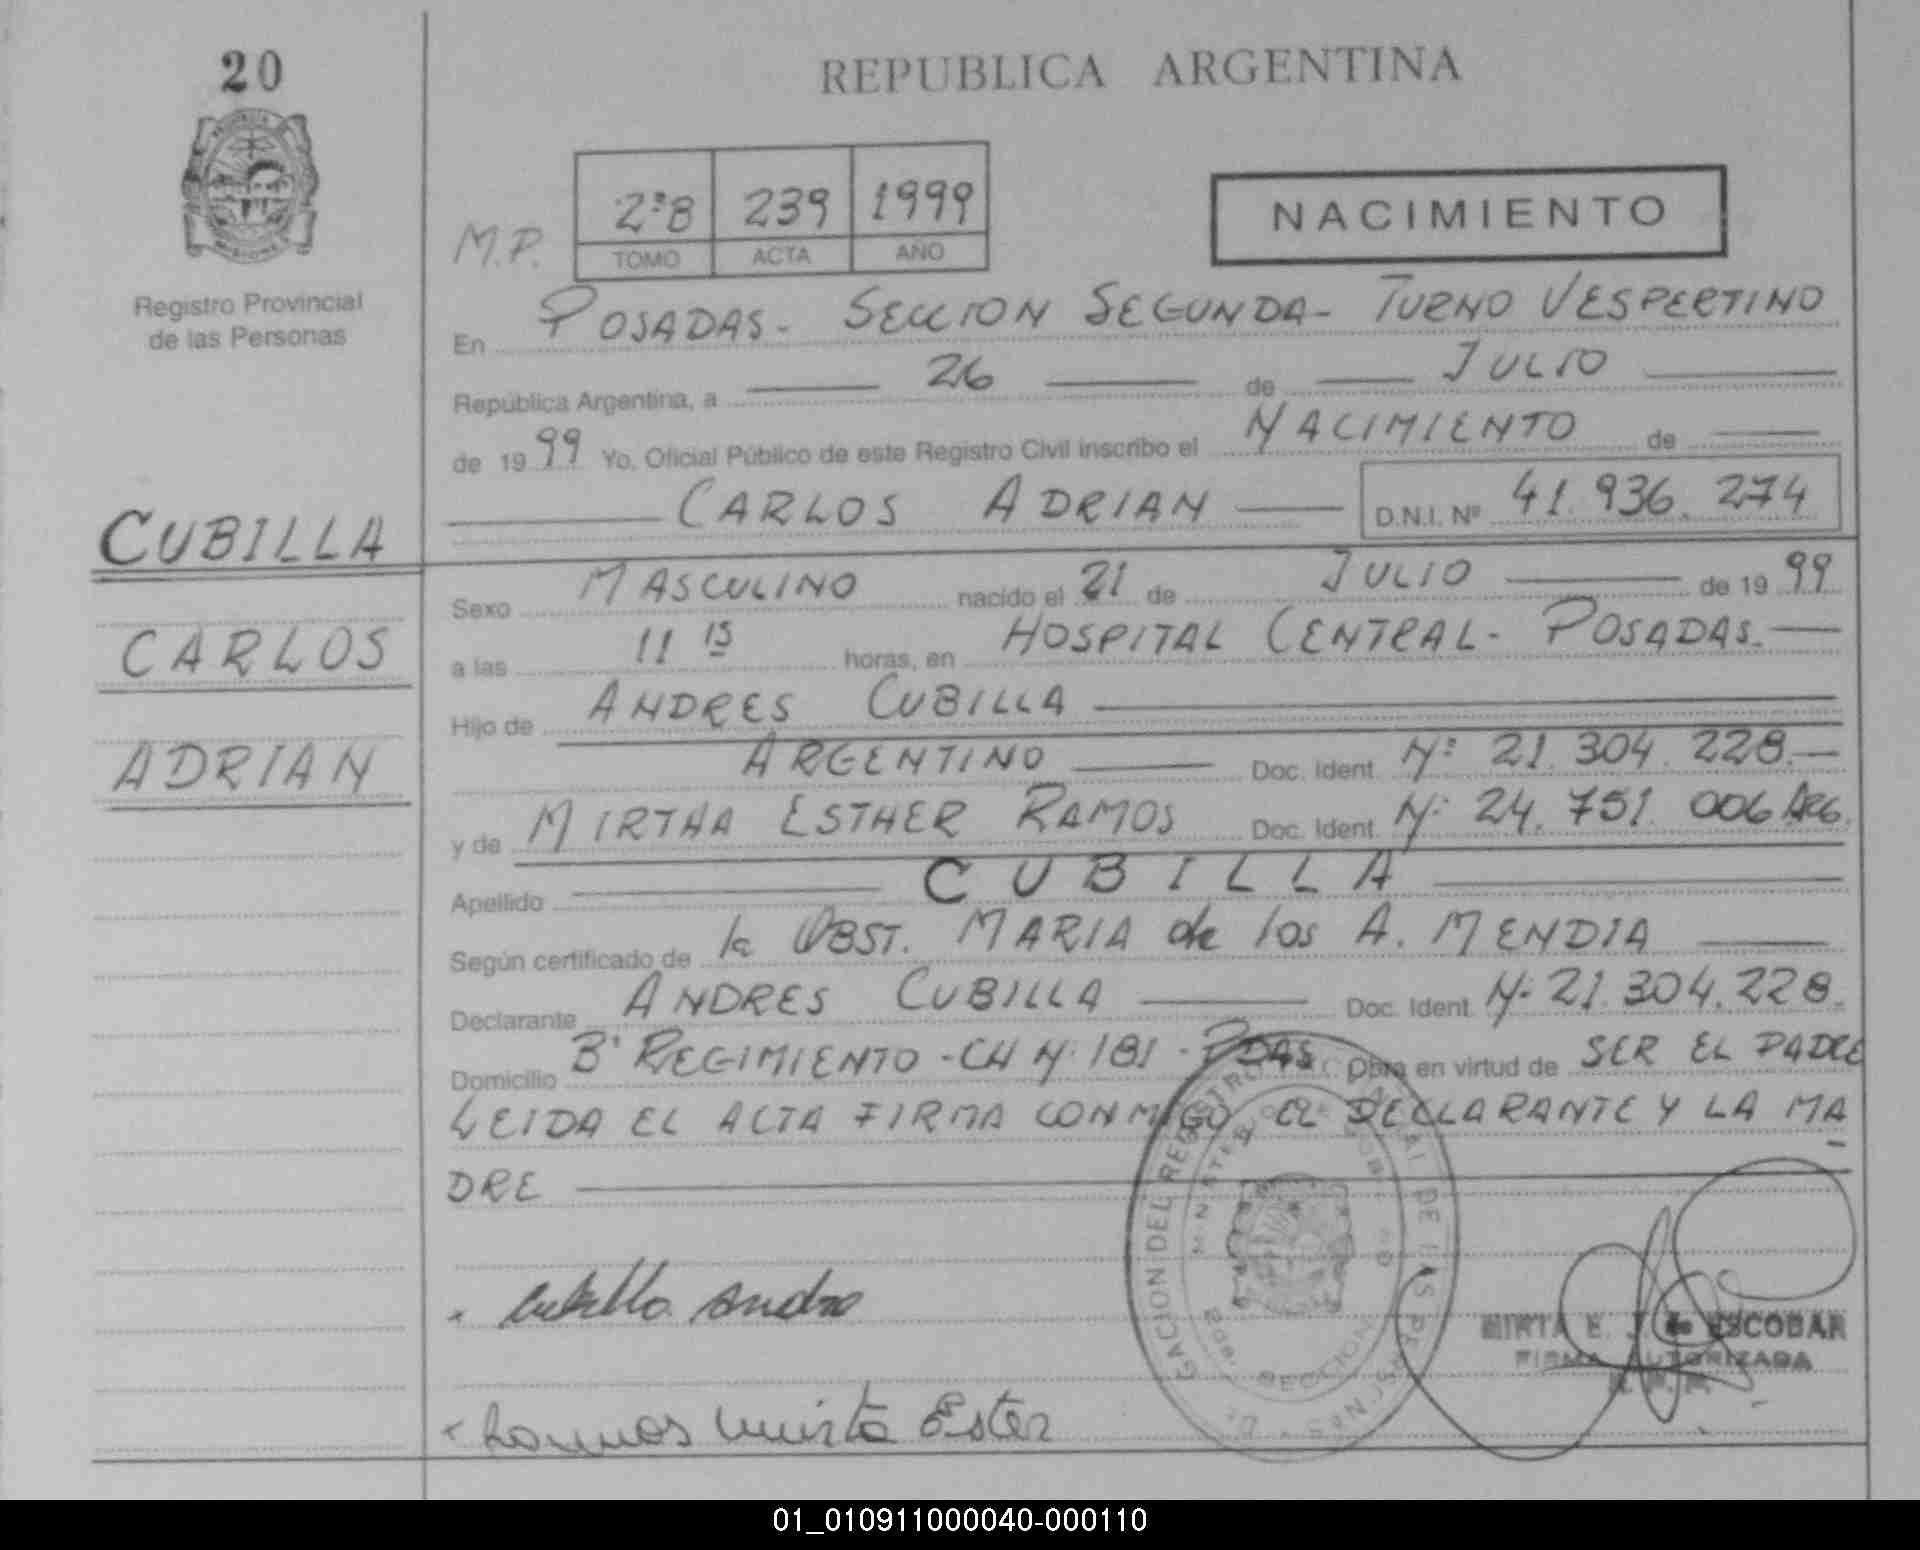 20
REPUBLICA ARGENTINA
Registro Provincial
de las Personas
M.P.
2ºB 239 1999
TOMO ACTA AÑO
NACIMIENTO
En POSADAS - SECCION SEGUNDA - TURNO VESPERTINO
República Argentina, a 26 de JULIO
de 19 99 Yo, Oficial Público de este Registro Civil inscribo el NACIMIENTO de
CARLOS ADRIAN D.N.I. Nº 41.936.274
CUBILLA
CARLOS
ADRIAN
Sexo MASCULINO nacido el 21 de JULIO de 19 99
a las 11 15 horas, en HOSPITAL CENTRAL - POSADAS.
Hijo de ANDRES CUBILLA
ARGENTINO Doc. Ident. Nº 21.304.228.
y de MIRTHA ESTHER RAMOS Doc. Ident. Nº 24.751.006 ARG.
Apellido CUBILLA
Según certificado de la OBST. MARIA de los A. MENDIA
Declarante ANDRES CUBILLA Doc. Ident. Nº 21.304.228.
Domicilio Bº REGIMIENTO - CH Nº 181 - PDAS Obra en virtud de SER EL PADRE
LEIDA EL ACTA FIRMA CONMIGO EL DECLARANTE Y LA MA-
DRE
Cubilla Andres
Ramos Mirta Ester
MIRTA E. ESCOBAR
FIRMA AUTORIZADA
01_010911000040-000110